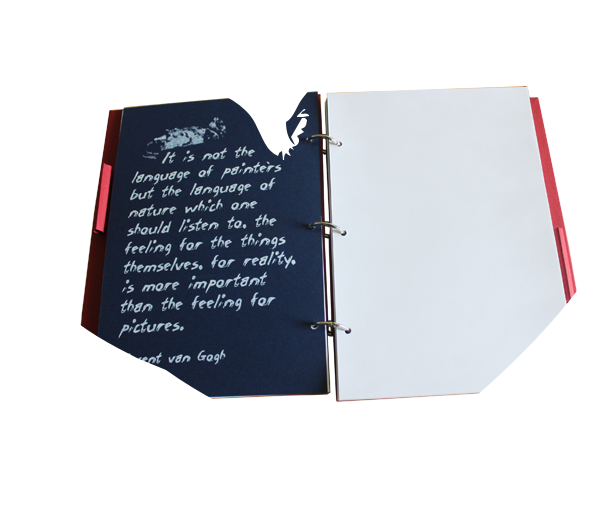 It is not the
language of painters
but the language of
nature which one
should listen to, the
feeling for the things
themselves, for reality,
is more important
than the feeling for
pictures.
van Gogh